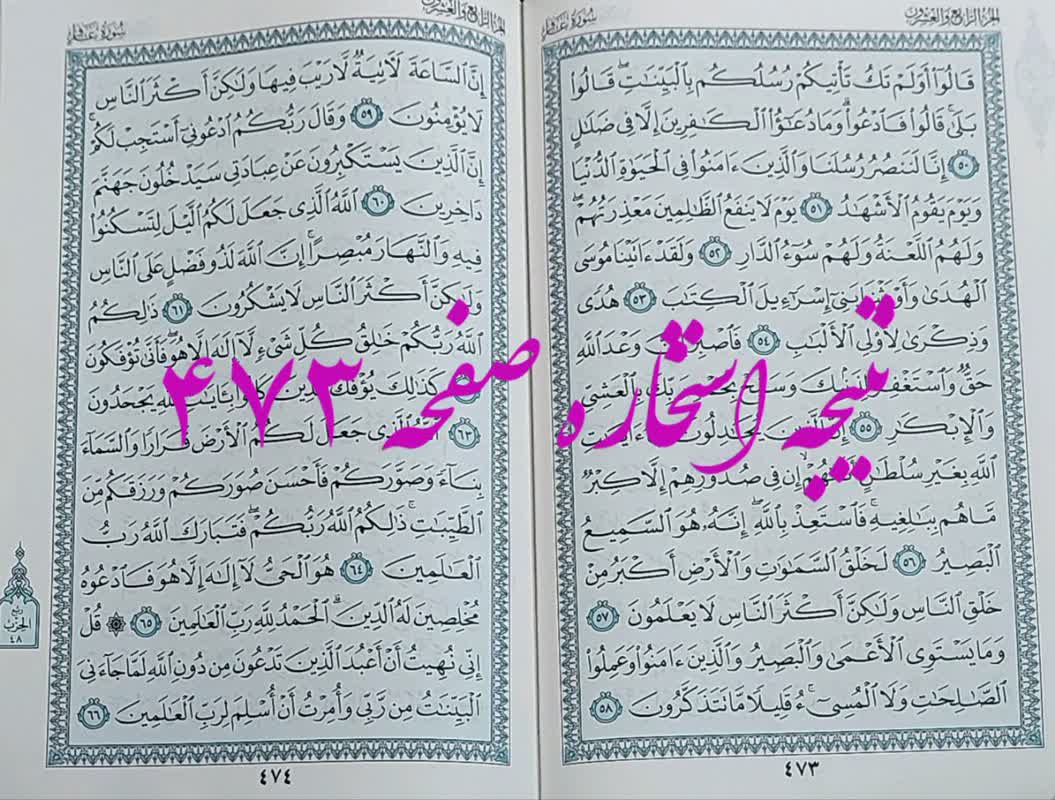 الجزء الرابع والعشرون
سورة غافر
قَالُوٓا۟ أَوَلَمْ تَكُ تَأْتِيكُمْ رُسُلُكُم بِٱلْبَيِّنَـٰتِ ۖ قَالُوا۟
بَلَىٰ ۚ قَالُوا۟ فَٱدْعُوا۟ ۗ وَمَا دُعَـٰٓؤُا۟ ٱلْكَـٰفِرِينَ إِلَّا فِى ضَلَـٰلٍ
٥٠ إِنَّا لَنَنصُرُ رُسُلَنَا وَٱلَّذِينَ ءَامَنُوا۟ فِى ٱلْحَيَوٰةِ ٱلدُّنْيَا
وَيَوْمَ يَقُومُ ٱلْأَشْهَـٰدُ ٥١ يَوْمَ لَا يَنفَعُ ٱلظَّـٰلِمِينَ مَعْذِرَتُهُمْ ۖ
وَلَهُمُ ٱللَّعْنَةُ وَلَهُمْ سُوٓءُ ٱلدَّارِ ٥٢ وَلَقَدْ ءَاتَيْنَا مُوسَى
ٱلْهُدَىٰ وَأَوْرَثْنَا بَنِىٓ إِسْرَٰٓءِيلَ ٱلْكِتَـٰبَ ٥٣ هُدًى
وَذِكْرَىٰ لِأُو۟لِى ٱلْأَلْبَـٰبِ ٥٤ فَٱصْبِرْ إِنَّ وَعْدَ ٱللَّهِ
حَقٌّ وَٱسْتَغْفِرْ لِذَنۢبِكَ وَسَبِّحْ بِحَمْدِ رَبِّكَ بِٱلْعَشِىِّ
وَٱلْإِبْكَـٰرِ ٥٥ إِنَّ ٱلَّذِينَ يُجَـٰدِلُونَ فِىٓ ءَايَـٰتِ
ٱللَّهِ بِغَيْرِ سُلْطَـٰنٍ أَتَىٰهُمْ ۙ إِن فِى صُدُورِهِمْ إِلَّا كِبْرٌ
مَّا هُم بِبَـٰلِغِيهِ ۚ فَٱسْتَعِذْ بِٱللَّهِ ۖ إِنَّهُۥ هُوَ ٱلسَّمِيعُ
ٱلْبَصِيرُ ٥٦ لَخَلْقُ ٱلسَّمَـٰوَٰتِ وَٱلْأَرْضِ أَكْبَرُ مِنْ
خَلْقِ ٱلنَّاسِ وَلَـٰكِنَّ أَكْثَرَ ٱلنَّاسِ لَا يَعْلَمُونَ ٥٧
وَمَا يَسْتَوِى ٱلْأَعْمَىٰ وَٱلْبَصِيرُ وَٱلَّذِينَ ءَامَنُوا۟ وَعَمِلُوا۟
ٱلصَّـٰلِحَـٰتِ وَلَا ٱلْمُسِىٓءُ ۚ قَلِيلًا مَّا تَتَذَكَّرُونَ ٥٨
٤٧٣
الجزء الرابع والعشرون
سورة غافر
إِنَّ ٱلسَّاعَةَ لَـَٔاتِيَةٌ لَّا رَيْبَ فِيهَا وَلَـٰكِنَّ أَكْثَرَ ٱلنَّاسِ
لَا يُؤْمِنُونَ ٥٩ وَقَالَ رَبُّكُمُ ٱدْعُونِىٓ أَسْتَجِبْ لَكُمْ ۚ
إِنَّ ٱلَّذِينَ يَسْتَكْبِرُونَ عَنْ عِبَادَتِى سَيَدْخُلُونَ جَهَنَّمَ
دَاخِرِينَ ٦٠ ٱللَّهُ ٱلَّذِى جَعَلَ لَكُمُ ٱلَّيْلَ لِتَسْكُنُوا۟
فِيهِ وَٱلنَّهَارَ مُبْصِرًا ۚ إِنَّ ٱللَّهَ لَذُو فَضْلٍ عَلَى ٱلنَّاسِ
وَلَـٰكِنَّ أَكْثَرَ ٱلنَّاسِ لَا يَشْكُرُونَ ٦١ ذَٰلِكُمُ
ٱللَّهُ رَبُّكُمْ خَـٰلِقُ كُلِّ شَىْءٍ لَّآ إِلَـٰهَ إِلَّا هُوَ ۖ فَأَنَّىٰ تُؤْفَكُونَ
كَذَٰلِكَ يُؤْفَكُ ٱلَّذِينَ كَانُوا۟ بِـَٔايَـٰتِ ٱللَّهِ يَجْحَدُونَ
٦٣ ٱللَّهُ ٱلَّذِى جَعَلَ لَكُمُ ٱلْأَرْضَ قَرَارًا وَٱلسَّمَآءَ
بِنَآءً وَصَوَّرَكُمْ فَأَحْسَنَ صُوَرَكُمْ وَرَزَقَكُم مِّنَ
ٱلطَّيِّبَـٰتِ ۚ ذَٰلِكُمُ ٱللَّهُ رَبُّكُمْ ۖ فَتَبَارَكَ ٱللَّهُ رَبُّ
ٱلْعَـٰلَمِينَ ٦٤ هُوَ ٱلْحَىُّ لَآ إِلَـٰهَ إِلَّا هُوَ فَٱدْعُوهُ
مُخْلِصِينَ لَهُ ٱلدِّينَ ۗ ٱلْحَمْدُ لِلَّهِ رَبِّ ٱلْعَـٰلَمِينَ ٦٥ ۞ قُلْ
إِنِّى نُهِيتُ أَنْ أَعْبُدَ ٱلَّذِينَ تَدْعُونَ مِن دُونِ ٱللَّهِ لَمَّا جَآءَنِىَ
ٱلْبَيِّنَـٰتُ مِن رَّبِّى وَأُمِرْتُ أَنْ أُسْلِمَ لِرَبِّ ٱلْعَـٰلَمِينَ ٦٦
٤٧٤
ربع
الحزب
٤٨
نتیجه استخاره صفحه ۴۷۳